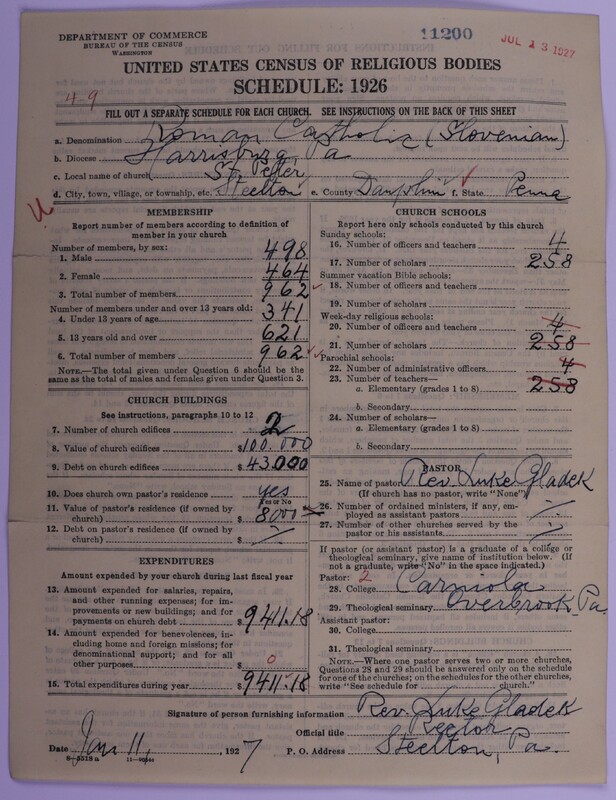 DEPARTMENT OF COMMERCE
BUREAU OF THE CENSUS
WASHINGTON
11200
JUL 13 1927
UNITED STATES CENSUS OF RELIGIOUS BODIES
SCHEDULE: 1926
4-9
FILL OUT A SEPARATE SCHEDULE FOR EACH CHURCH. SEE INSTRUCTIONS ON THE BACK OF THIS SHEET
a. Denomination Roman Catholic (Slovenian)
b. Diocese Harrisburg, Pa
c. Local name of church St. Peter
d. City, town, village, or township, etc. Steelton e. County Dauphin f. State Penna
MEMBERSHIP
Report number of members according to definition of
member in your church
Number of members, by sex:
1. Male 498
2. Female 464
3. Total number of members 962
Number of members under and over 13 years old:
4. Under 13 years of age 341
5. 13 years old and over 621
6. Total number of members 962
NOTE.—The total given under Question 6 should be
same as the total of males and females given under Question 3.
CHURCH BUILDINGS
See instructions, paragraphs 10 to 12
7. Number of church edifices 2
8. Value of church edifices $100.000
9. Debt on church edifices $43.000
10. Does church own pastor's residence yes
Yes or No
11. Value of pastor's residence (if owned by
church) $8000
12. Debt on pastor's residence (if owned by
church) $
EXPENDITURES
Amount expended by your church during last fiscal year
13. Amount expended for salaries, repairs,
and other running expenses; for im-
provements or new buildings; and for
payments on church debt $9411.18
14. Amount expended for benevolences,
including home and foreign missions; for
denominational support; and for all
other purposes $ 0
15. Total expenditures during year $9411.18
CHURCH SCHOOLS
Report here only schools conducted by this church
Sunday schools:
16. Number of officers and teachers 4
17. Number of scholars 258
Summer vacation Bible schools:
18. Number of officers and teachers
19. Number of scholars
Week-day religious schools:
20. Number of officers and teachers 4
21. Number of scholars 258
Parochial schools:
22. Number of administrative officers 4
23. Number of teachers—
a. Elementary (grades 1 to 8) 258
b. Secondary
24. Number of scholars—
a. Elementary (grades 1 to 8)
b. Secondary
PASTOR
25. Name of pastor Rev. Luke Gladek
(If church has no pastor, write "None")
26. Number of ordained ministers, if any, em-
ployed as assistant pastors
27. Number of other churches served by the
pastor or his assistants
If pastor (or assistant pastor) is a graduate of a college or
theological seminary, give name of institution below. (If
not a graduate, write "No" in the space indicated.)
Pastor: 2
28. College Carniola
29. Theological seminary Overbrook, Pa.
Assistant pastor:
30. College
31. Theological seminary
NOTE.—Where one pastor serves two or more churches,
Questions 28 and 29 should be answered only on the schedule
for one of the churches; on the schedules for the other churches,
write "See schedule for church."
Signature of person furnishing information Rev. Luke Gladek
Official title Rector
Date Jan 11, 1927 P. O. Address Steelton, Pa.